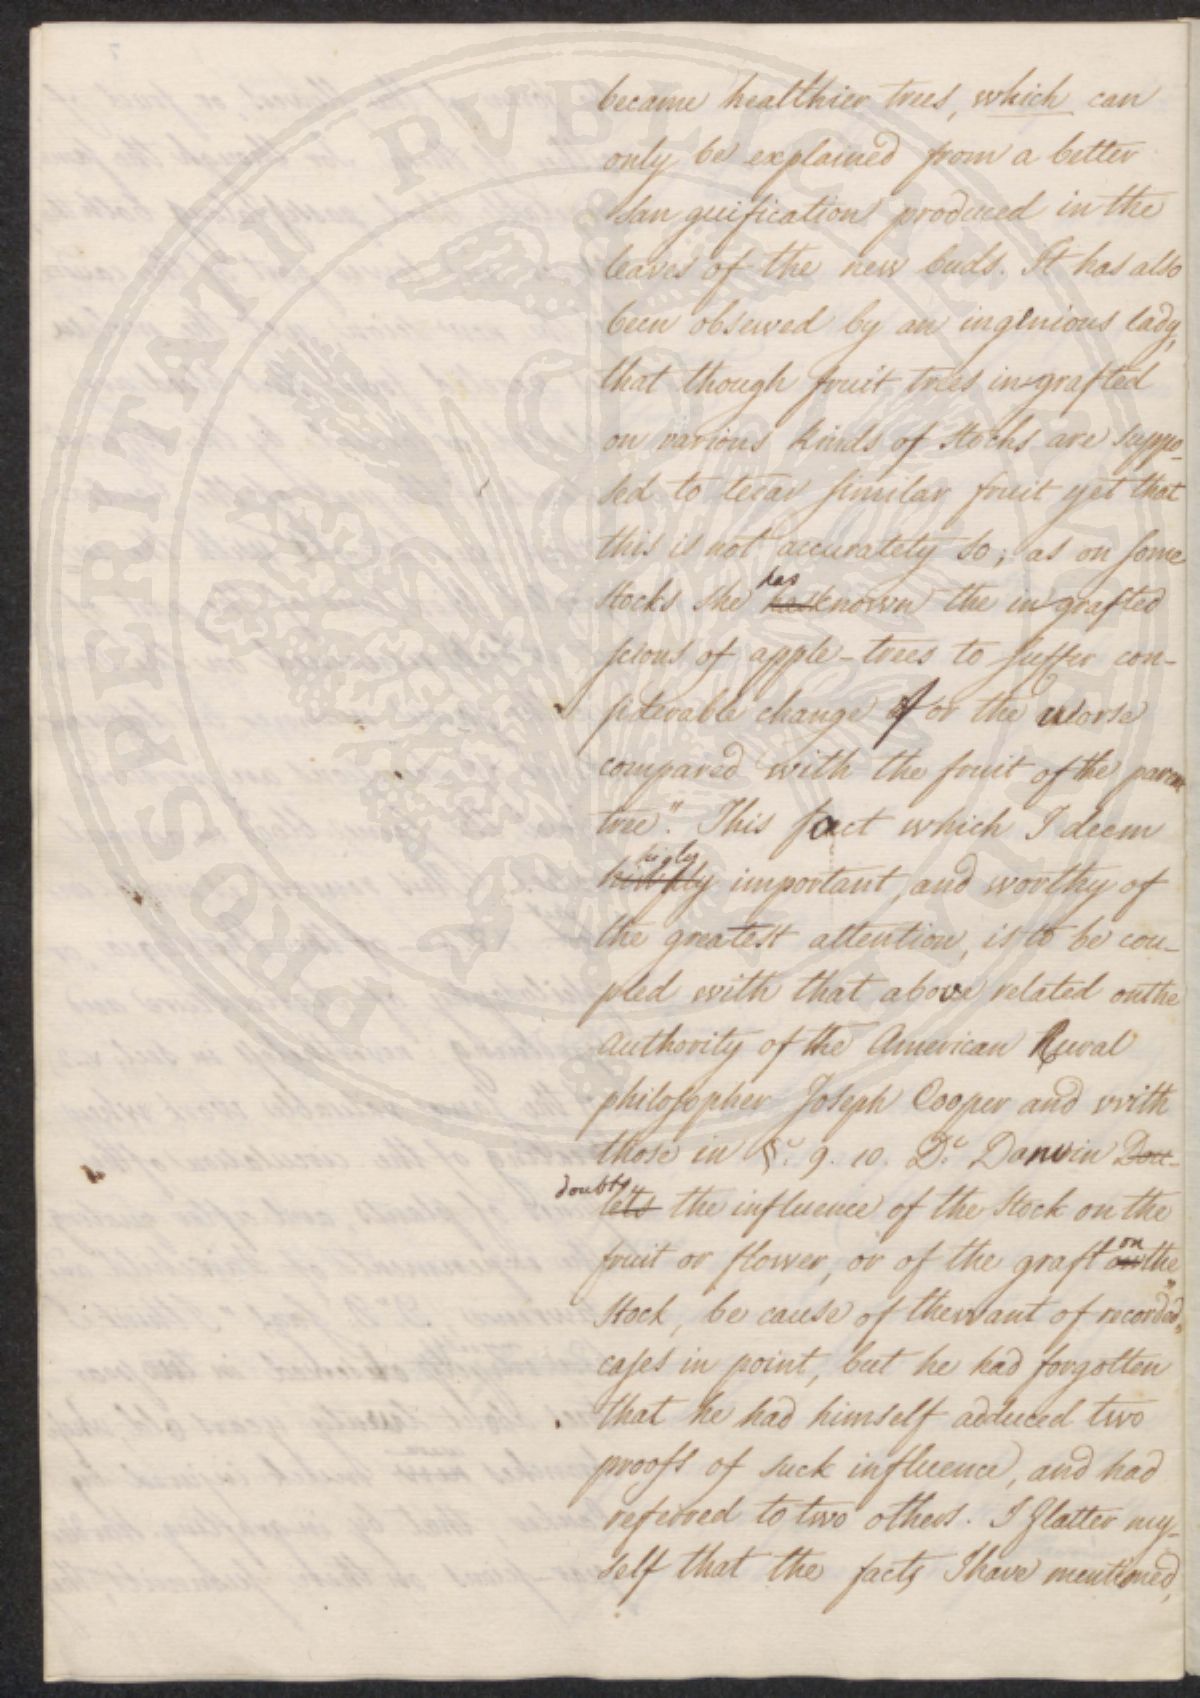 became healthier trees, which can
only be explained from a better
san guification produced in the
leaves of the new buds. It has also
been observed by an ingenious lady,
that though fruit trees in-grafted
on various kinds of stocks are suppo-
sed to bear similar fruit yet that
this is not accurately so; as on some
has
stocks she had known the in grafted
scions of apple-trees to suffer con-
siderable change for the worse
compared with the fruit of the parent
tree". This fact which I deem
higly
important, and worthy of
the greatest attention, is to be cou-
pled with that above related on the
authority of the American Rural
philosopher Joseph Cooper and with
those in §. 9. 10. Dr. Darwin Dou-
doubts
bts the influence of the stock on the
on
fruit or flower, or of the graft on the
stock, be cause of the want of recorded"
cases in point, but he had forgotten
that he had himself adduced two
proofs of such influence, and had
referred to two others. I flatter my-
self that the facts I have mentioned,
PROSPERITATI PVBLICAE